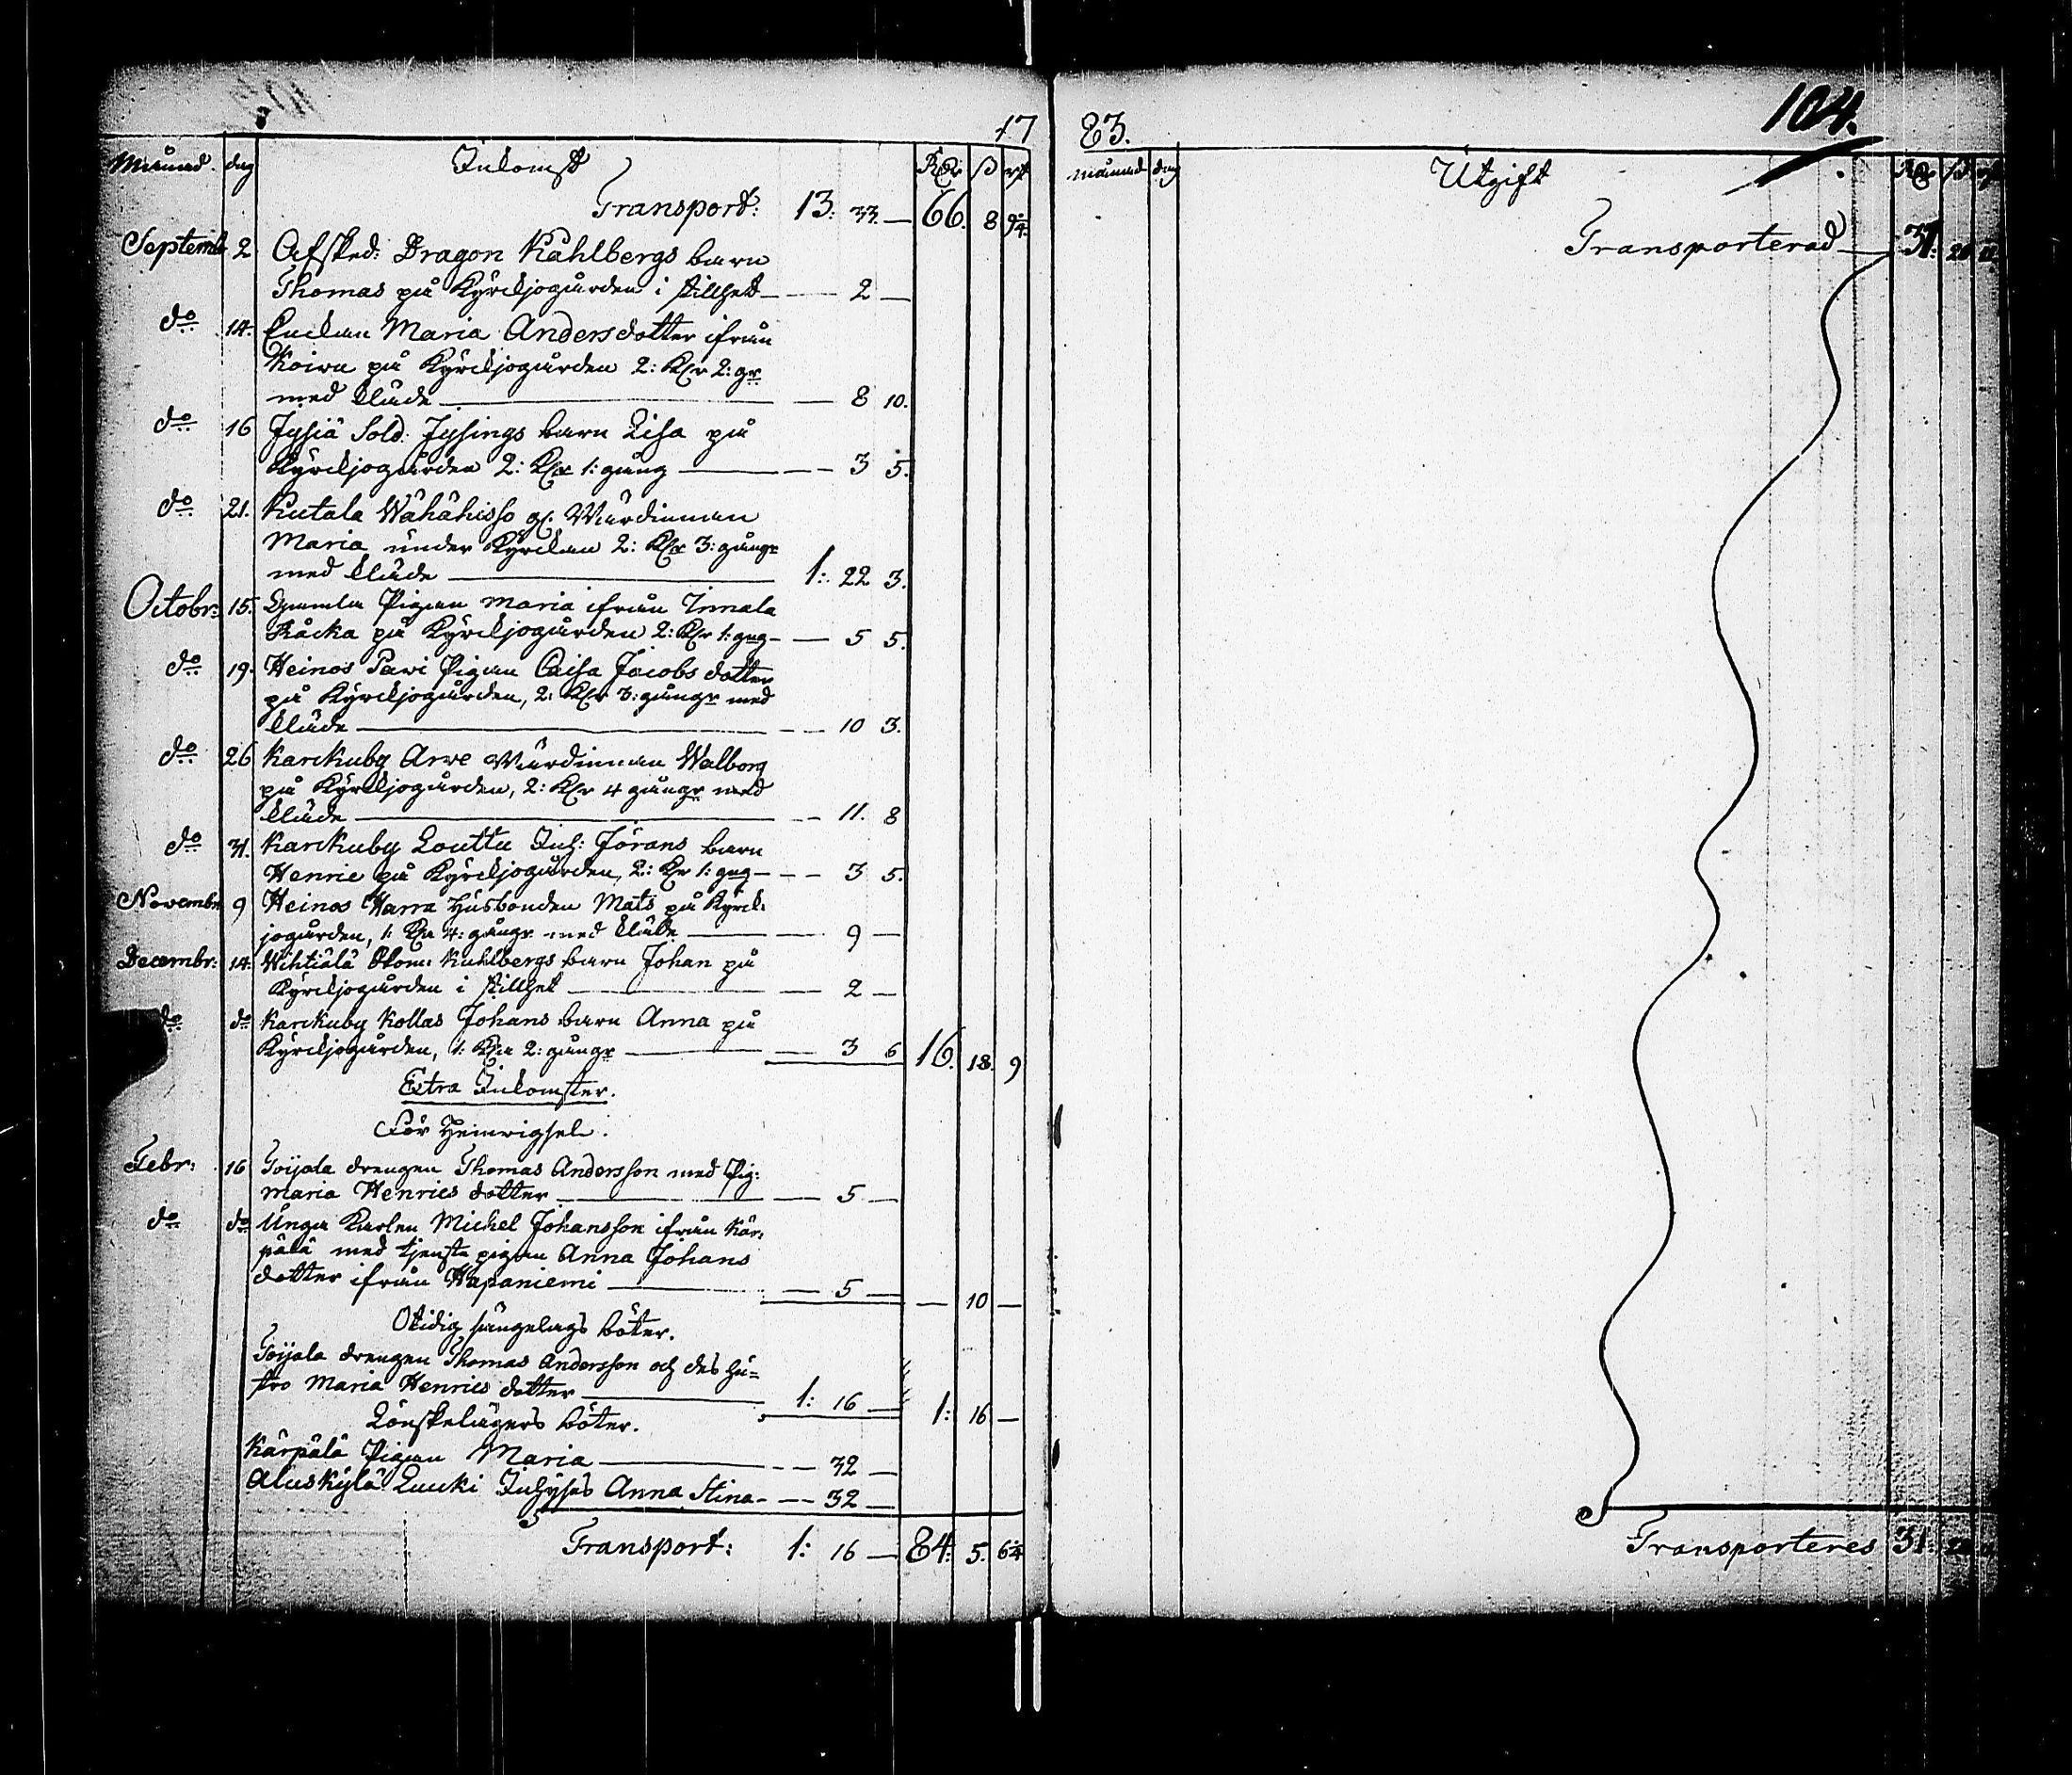 17
Månad. dag Inkomst Rdr ß rst
Transport: 13: 33. — 66. 8 9 2/4.
Septemb 2 Afsked: Dragon Kåhlbergs barn
Thomas på Kyrckjogården i stillhet — 2 —
do 14. Enckan Maria Andersdotter ifrån
Koivu på Kyrckjogården 2: Klr 2: gr
med kläde — 8 10.
do 16 Jysiä Sold. Jysings barn Lisa på
Kyrckjogården 2: Klr 1: gång — 3 5.
do 21. Kutala Wähähisso gl. Wärdinnan
Maria under Kyrckan 2: Klr 3: gångr
med kläde — 1: 22 3.
Octobr: 15. Gamla Pigan Maria ifrån Innala
Råcka på Kyrckjogården 2: Klr 1: gng — 5 5.
do 19. Heinos Pavi Pigan Caisa Jacobs dotter
på Kyrckjogården, 2: Klr 3: gångr med
kläde — 10 3.
do 26 Karckuby Arve Wärdinnan Walborg
på Kyrckjogården, 2: Klr 4 gångr med
kläde — 11. 8
do 31. Karckuby Louttu Inh: Jörans barn
Henric på Kyrckjogården, 2: Klr 1: gng — 3 5.
Novembr 9 Heinos Harra Husbonden Mats på Kyrck-
jogården, 1: Kla 4: gångr med kläde — 9 —
Decembr: 14. Wihtiälä Kuhlbergs barn Johan på
Kyrckjogården i stillhet — 2 —
do do Karckuby Kollas Johans barn Anna på
Kyrckjogården, 1: Kla 2: gångr — 3 6 16. 18. 9
Extra Inkomster.
För Hemvigsel.
Febr: 16 Goijala drengen Thomas Andersson med Pig:
Maria Henrics dotter — 5 —
do do Unga Karlen Michel Johansson ifrån Kär-
pälä med tjensta pigan Anna Johans
dotter ifrån Hapaniemi — 5 — — 10 —
Otidig sängelags böter.
Goijala drengen Thomas Andersson och des hu=
stro Maria Henrics dotter — 1: 16 — 1: 16 —
Lönskelägers böter.
Kärpälä Pigan Maria — 32 —
Aluskylä Luuki Inhyses Anna Stina — 32 —
Transport: 1: 16 — 84: 5. 6 2/4
83.
104.
månad dag Utgift Rdr ß rst
Transporterad — 31:
Transporteres 31: